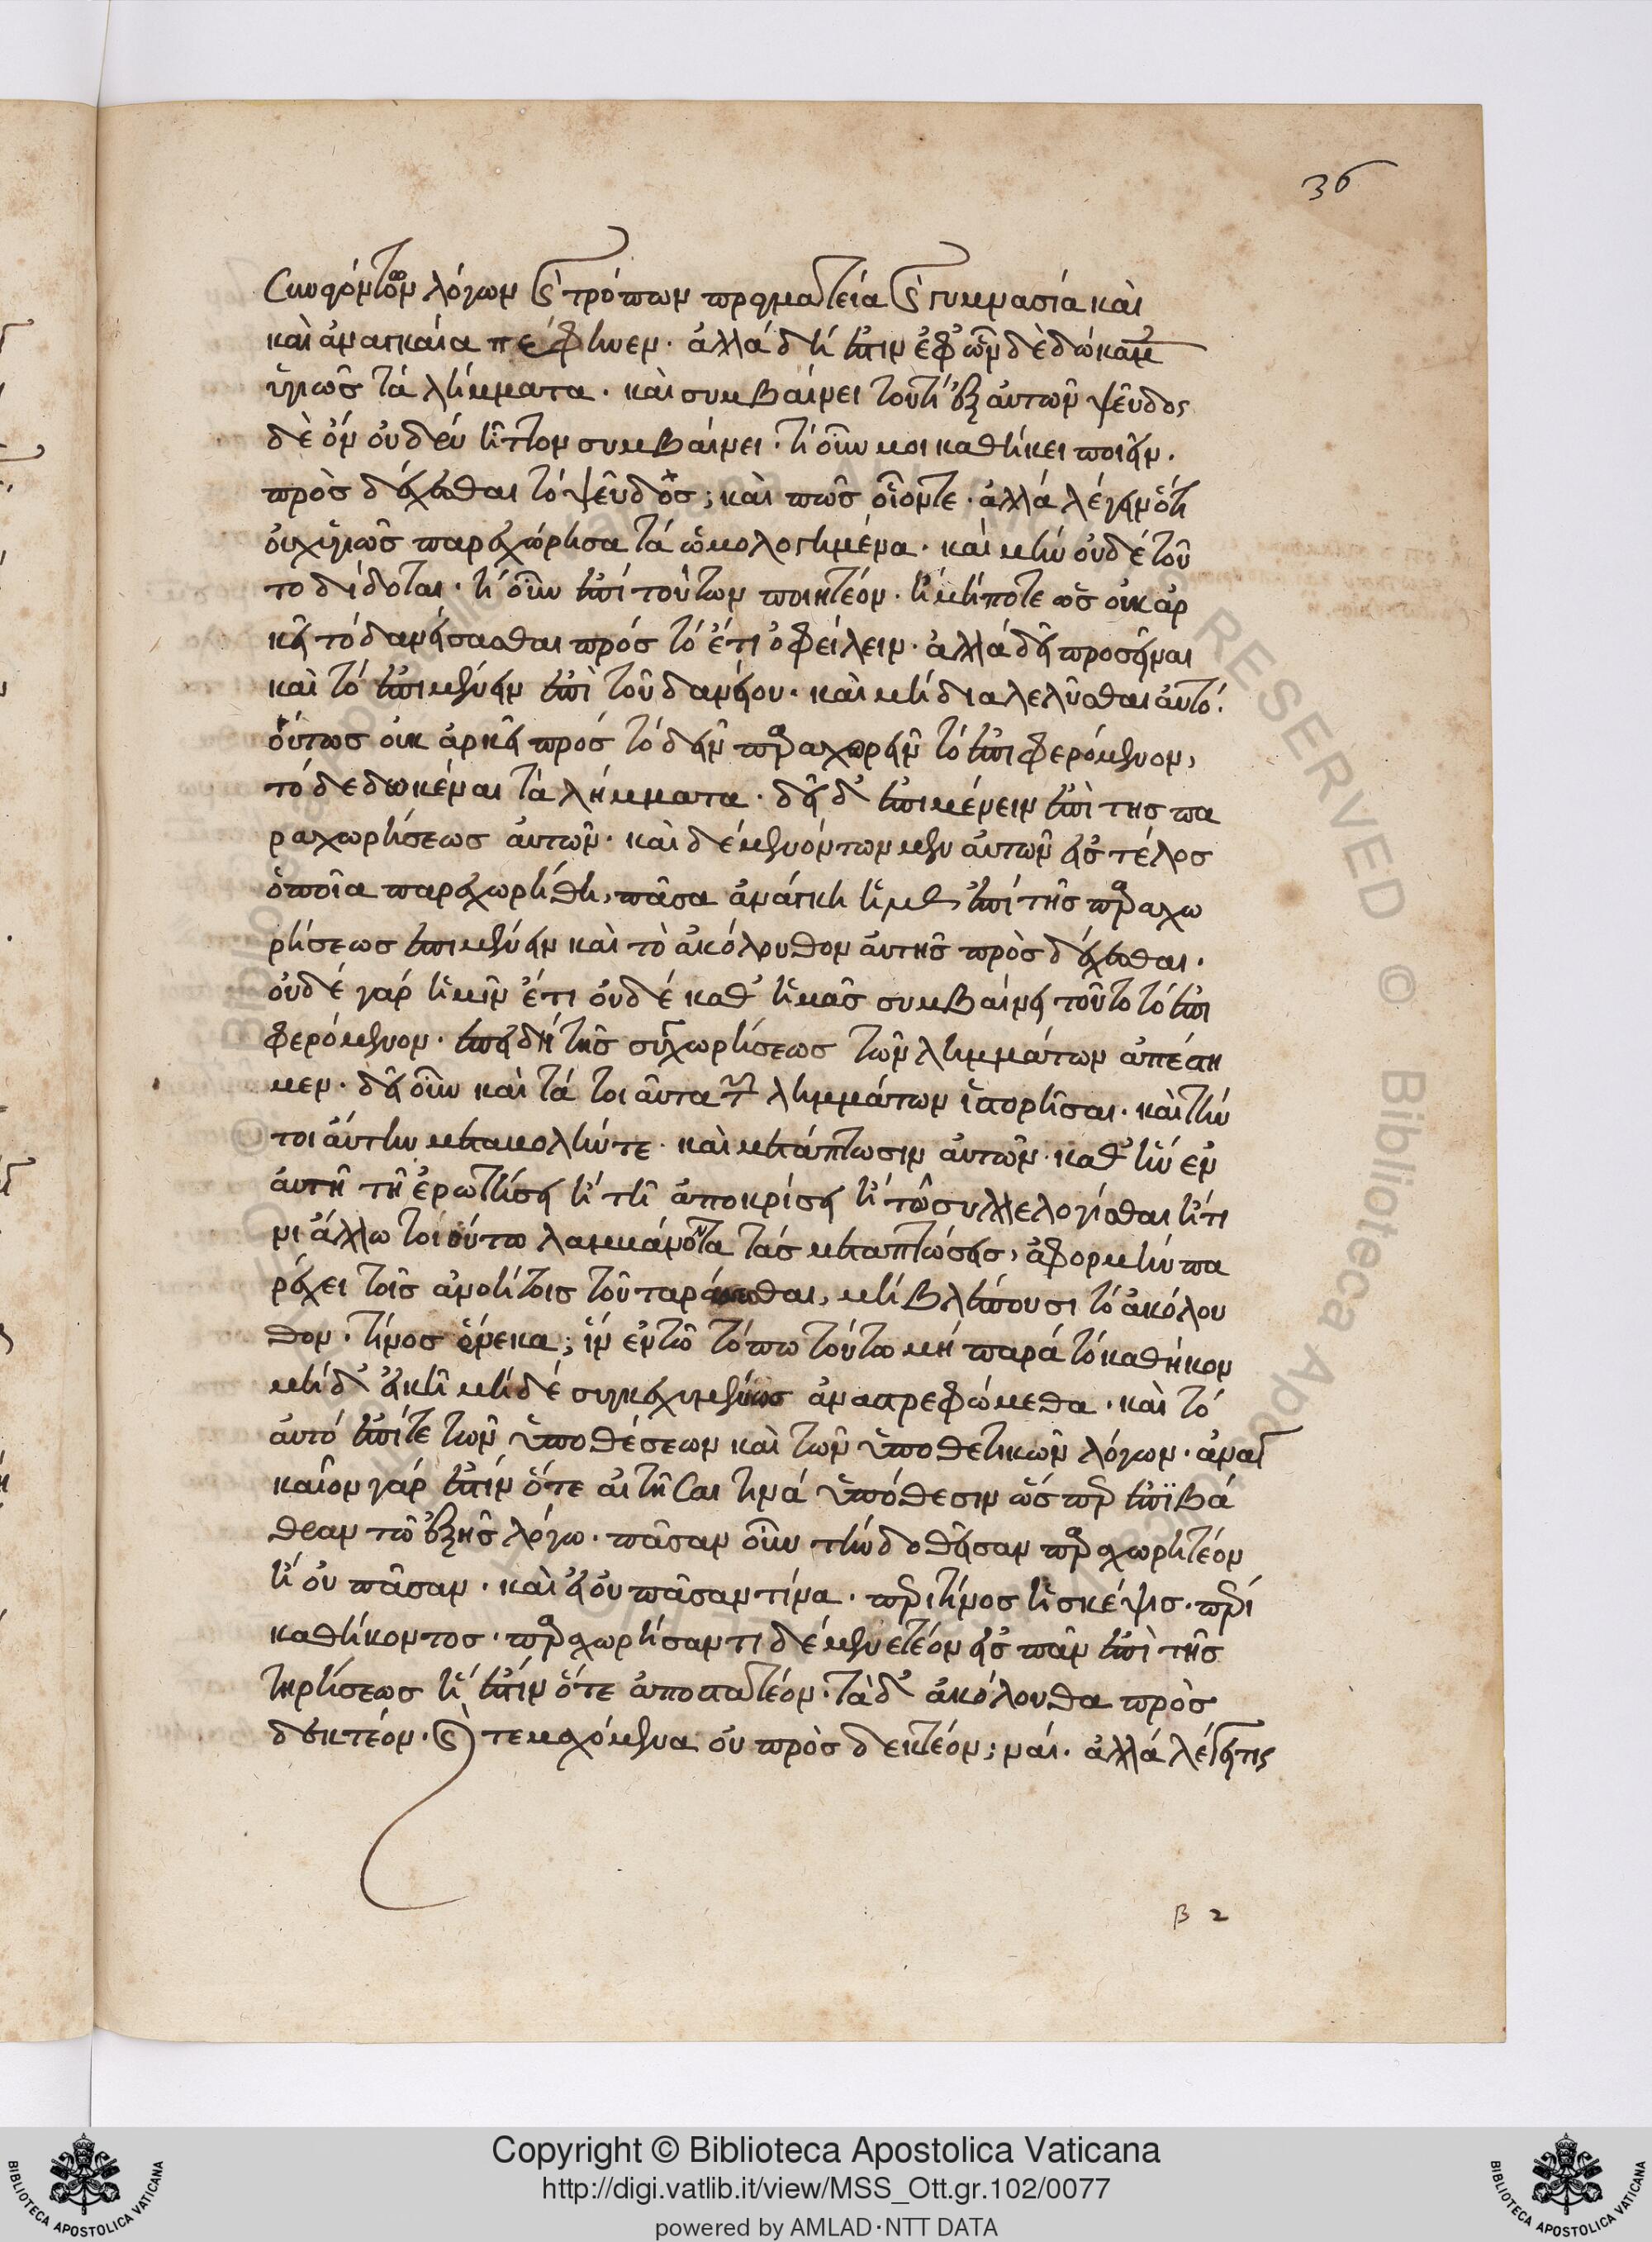 36
συναγόντων λόγων καὶ τρόπων πραγματεία καὶ γυμνασία καὶ
καὶ ἀναγκαία πέφηνεν. ἀλλά δή ἐστιν ἐφ' ὧν δεδώκαμεν
ὑγιῶς τά λήμματα. καὶ συμβαίνει τουτί ἐξ αὐτῶν ψεῦδος
δὲ ὄν οὐδέν ἧττον συμβαίνει. τί οὖν μοι καθήκει ποιεῖν.
πρὸς δέχεσθαι τό ψεῦδος; καὶ πῶς οἷόντε. ἀλλά λέγειν ὅτι
οὐχ ὑγιῶς παρεχώρησα τά ὡμολογημένα. καί μήν οὐδέ τοῦ
το δίδοται. τί οὖν ἐπί τούτων ποιητέον. ἤ μήποτε ὡς οὐκ ἀρ
κεῖ τό δανείσασθαι πρός τό ἔτι ὀφείλειν. ἀλλά δεῖ προσεῖναι
καὶ τό ἐπιμένειν ἐπὶ τοῦ δανείου. καὶ μή διαλελύσθαι αὐτό.
οὕτως οὐκ ἀρκεῖ πρός τό δεῖν παραχωρεῖν τό ἐπιφερόμενον,
τό δεδωκέναι τὰ λήμματα. δεῖ δ' ἐπιμένειν ἐπὶ της πα
ραχωρήσεως αὐτῶν. καὶ δέ μενόντων μεν αὐτῶν εἰς τέλος
ὁποῖα παρεχωρήθη, πᾶσα ἀνάγκη ἡμᾶς ἐπί τῆς παραχω
ρήσεως ἐπιμένειν καὶ τὸ ἀκόλουθον αὐτῆς πρὸς δέχεσθαι.
οὐδέ γάρ ἡμῖν ἔτι οὐδέ καθ' ἡμᾶς συμβαίνει τοῦτο τό ἐπι
φερόμενον. ἐπειδή τῆς συγχωρήσεως τῶν λημμάτων ἀπέστη
μεν. δεῖ οὖν καὶ τά τοιαῦτα τῶν λημμάτων ἱστορῆσαι. καὶ τήν
τοιαύτην μεταβολήν τε. καὶ μετάπτωσιν αὐτῶν. καθ' ἥν ἐν
αὐτῇ τῇ ἐρωτήσει ἤ τῇ ἀποκρίσει ἤ τῷ συλλελογίσθαι ἤ τι
νι ἄλλω τοιούτω λαμβάνοντα τάς μεταπτώσεις, ἀφορμήν πα
ρέχει τοῖς ἀνοήτοις τοῦ ταράσσεσθαι, μή βλέπουσι τό ἀκόλου
θον. τίνος ἕνεκα; ἵν ἐν τῶ τόπω τούτω μή παρά τό καθῆκον
μή δ' εἰκῆ μή δέ συγκεχυμένως ἀναστρεφώμεθα. καὶ τό
αὐτό ἐπί τε τῶν ὑποθέσεων καὶ τῶν ὑποθετικῶν λόγων. ἀναγ
καῖον γάρ ἐστίν ὅτε αἰτῆσαι τινά ὑπόθεσιν ὥσπερ ἐπϊβά
θραν τῶ ἑξῆς λόγω. πᾶσαν οὖν τήν δοθεῖσαν παραχωρητέον
ἤ οὐ πᾶσαν. καὶ εἰ οὐ πᾶσαν τίνα. περὶ τίνος ἡ σκέψις. περί
καθήκοντος. παραχωρήσαντι δέ μενετέον εἰς πᾶν ἐπὶ τῆς
τηρήσεως ἤ ἐστίν ὅτε ἀποστατέον. τὰ δ' ἀκόλουθα πρὸς
δεκτέον. καὶ τε μαχόμενα οὐ πρὸς δεκτέον; ναί. ἀλλά λέγει τις
β 2
Copyright © Biblioteca Apostolica Vaticana
http://digi.vatlib.it/view/MSS_Ott.gr.102/0077
powered by AMLAD·NTT DATA